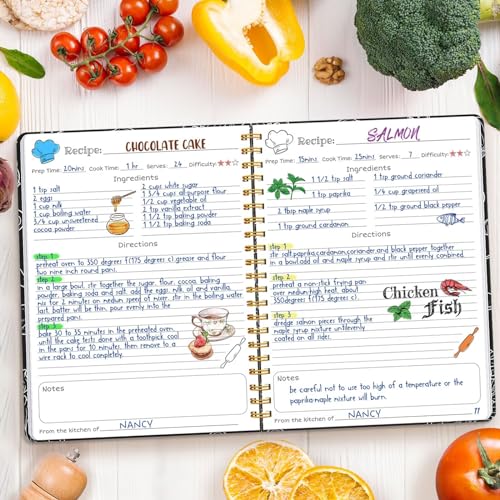 Recipe: CHOCOLATE CAKE
Prep Time: 20mins Cook Time: 1 hr Serves: 24 Difficulty:
Ingredients
1 tsp salt
2 eggs
1 cup milk
1 cup boiling water
3/4 cup unsweetened
cocoa powder
2 cups white sugar
1 3/4 cups all purpose flour
1/2 cup vegetable oil
2 tsp vanilla extract
1 1/2 tsp baking powder
1 1/2 tsp baking soda
Directions
step 1
preheat oven to 350 degrees f(175 degrees c).grease and flour
two nine inch round pans.
step 2
in a large bowl, stir together the sugar, flour, cocoa, baking
powder, baking soda and salt. add the eggs, milk, oil and vanilla,
mix for 2 minutes on medium speed of mixer. stir in the boiling water
last. batter will be thin. pour evenly into the
prepared pans.
step 3
bake 30 to 35 minutes in the preheated oven,
until the cake tests done with a toothpick. cool
in the pans for 10 minutes, then remove to a
wire rack to cool completely.
Notes
From the kitchen of NANCY
Recipe: SALMON
Prep Time: 15mins Cook Time: 25mins Serves: 7 Difficulty:
Ingredients
1 1/2 tsp salt
1 tsp paprika
2 tbsp maple syrup
1 tsp ground cardamon
1 tsp ground coriander
1/4 cup grapeseed oil
1/2 tsp ground black pepper
Directions
step 1
stir salt,paprika,cardamon,coriander,and black pepper together
in a bowl.add oil and maple syrup and stir until evenly combined.
step 2
preheat a non-stick frying pan
over medium high heat. about
350degrees f(175 degrees c).
Chicken
Fish
step 3
dredge salmon pieces through the
maple syrup mixture untilevenly
coated on all sides.
Notes
be careful not to use too high of a temperature or the
paprika-maple mixture will burn.
From the kitchen of NANCY
11